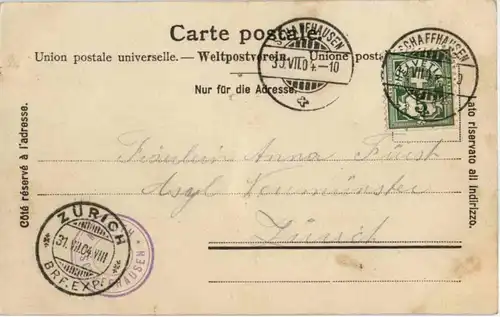 Carte postale.
Union postale universelle. — Weltpostverein. — Unione postale
Nur für die Adresse.
SCHAFFHAUSEN
30.VII.04.-10
SCHAFFHAUSEN
HELVETIA
5
Côté réservé à l'adresse.
Lato riservato all indirizzo.
Fräulein Anna Fürst
Asyl Neumünster
Zürich
ZÜRICH
31.VII.04.VIII
BRF.EXP.